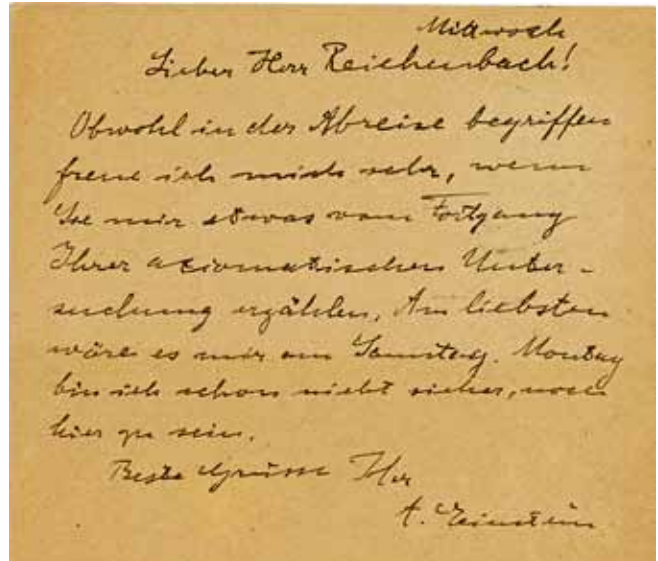 Mittwoch
Lieber Herr Reichenbach!
Obwohl in der Abreise begriffen
freue ich mich sehr, wenn
Sie mir etwas vom Fortgang
Ihrer axiomatischen Unter-
suchung erzählen. Am liebsten
wäre es mir am Samstag. Montag
bin ich schon nicht sicher, noch
hier zu sein.
Beste Grüsse Ihr
A. Einstein